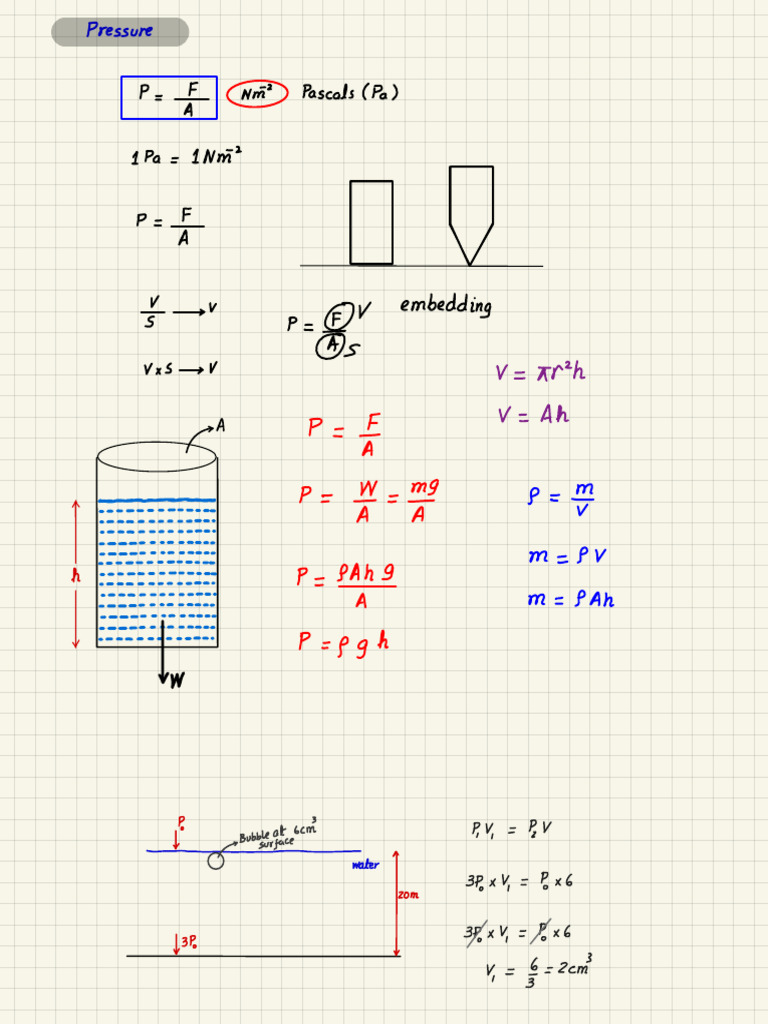 Pressure
P = F/A Nm⁻² Pascals (Pa)
1 Pa = 1 Nm⁻²
P = F/A
V/S → V
P = F/A V S
embedding
V × S → V
V = πr²h
V = Ah
A
P = F/A
P = W/A = mg/A
ρ = m/V
h
m = ρV
P = ρAhg/A
m = ρAh
P = ρgh
W
P₀
Bubble at 6cm³
surface
water
20m
3P₀
P₁V₁ = P₂V
3P₀ × V₁ = P₀ × 6
3P₀ × V₁ = P₀ × 6
V₁ = 6/3 = 2cm³